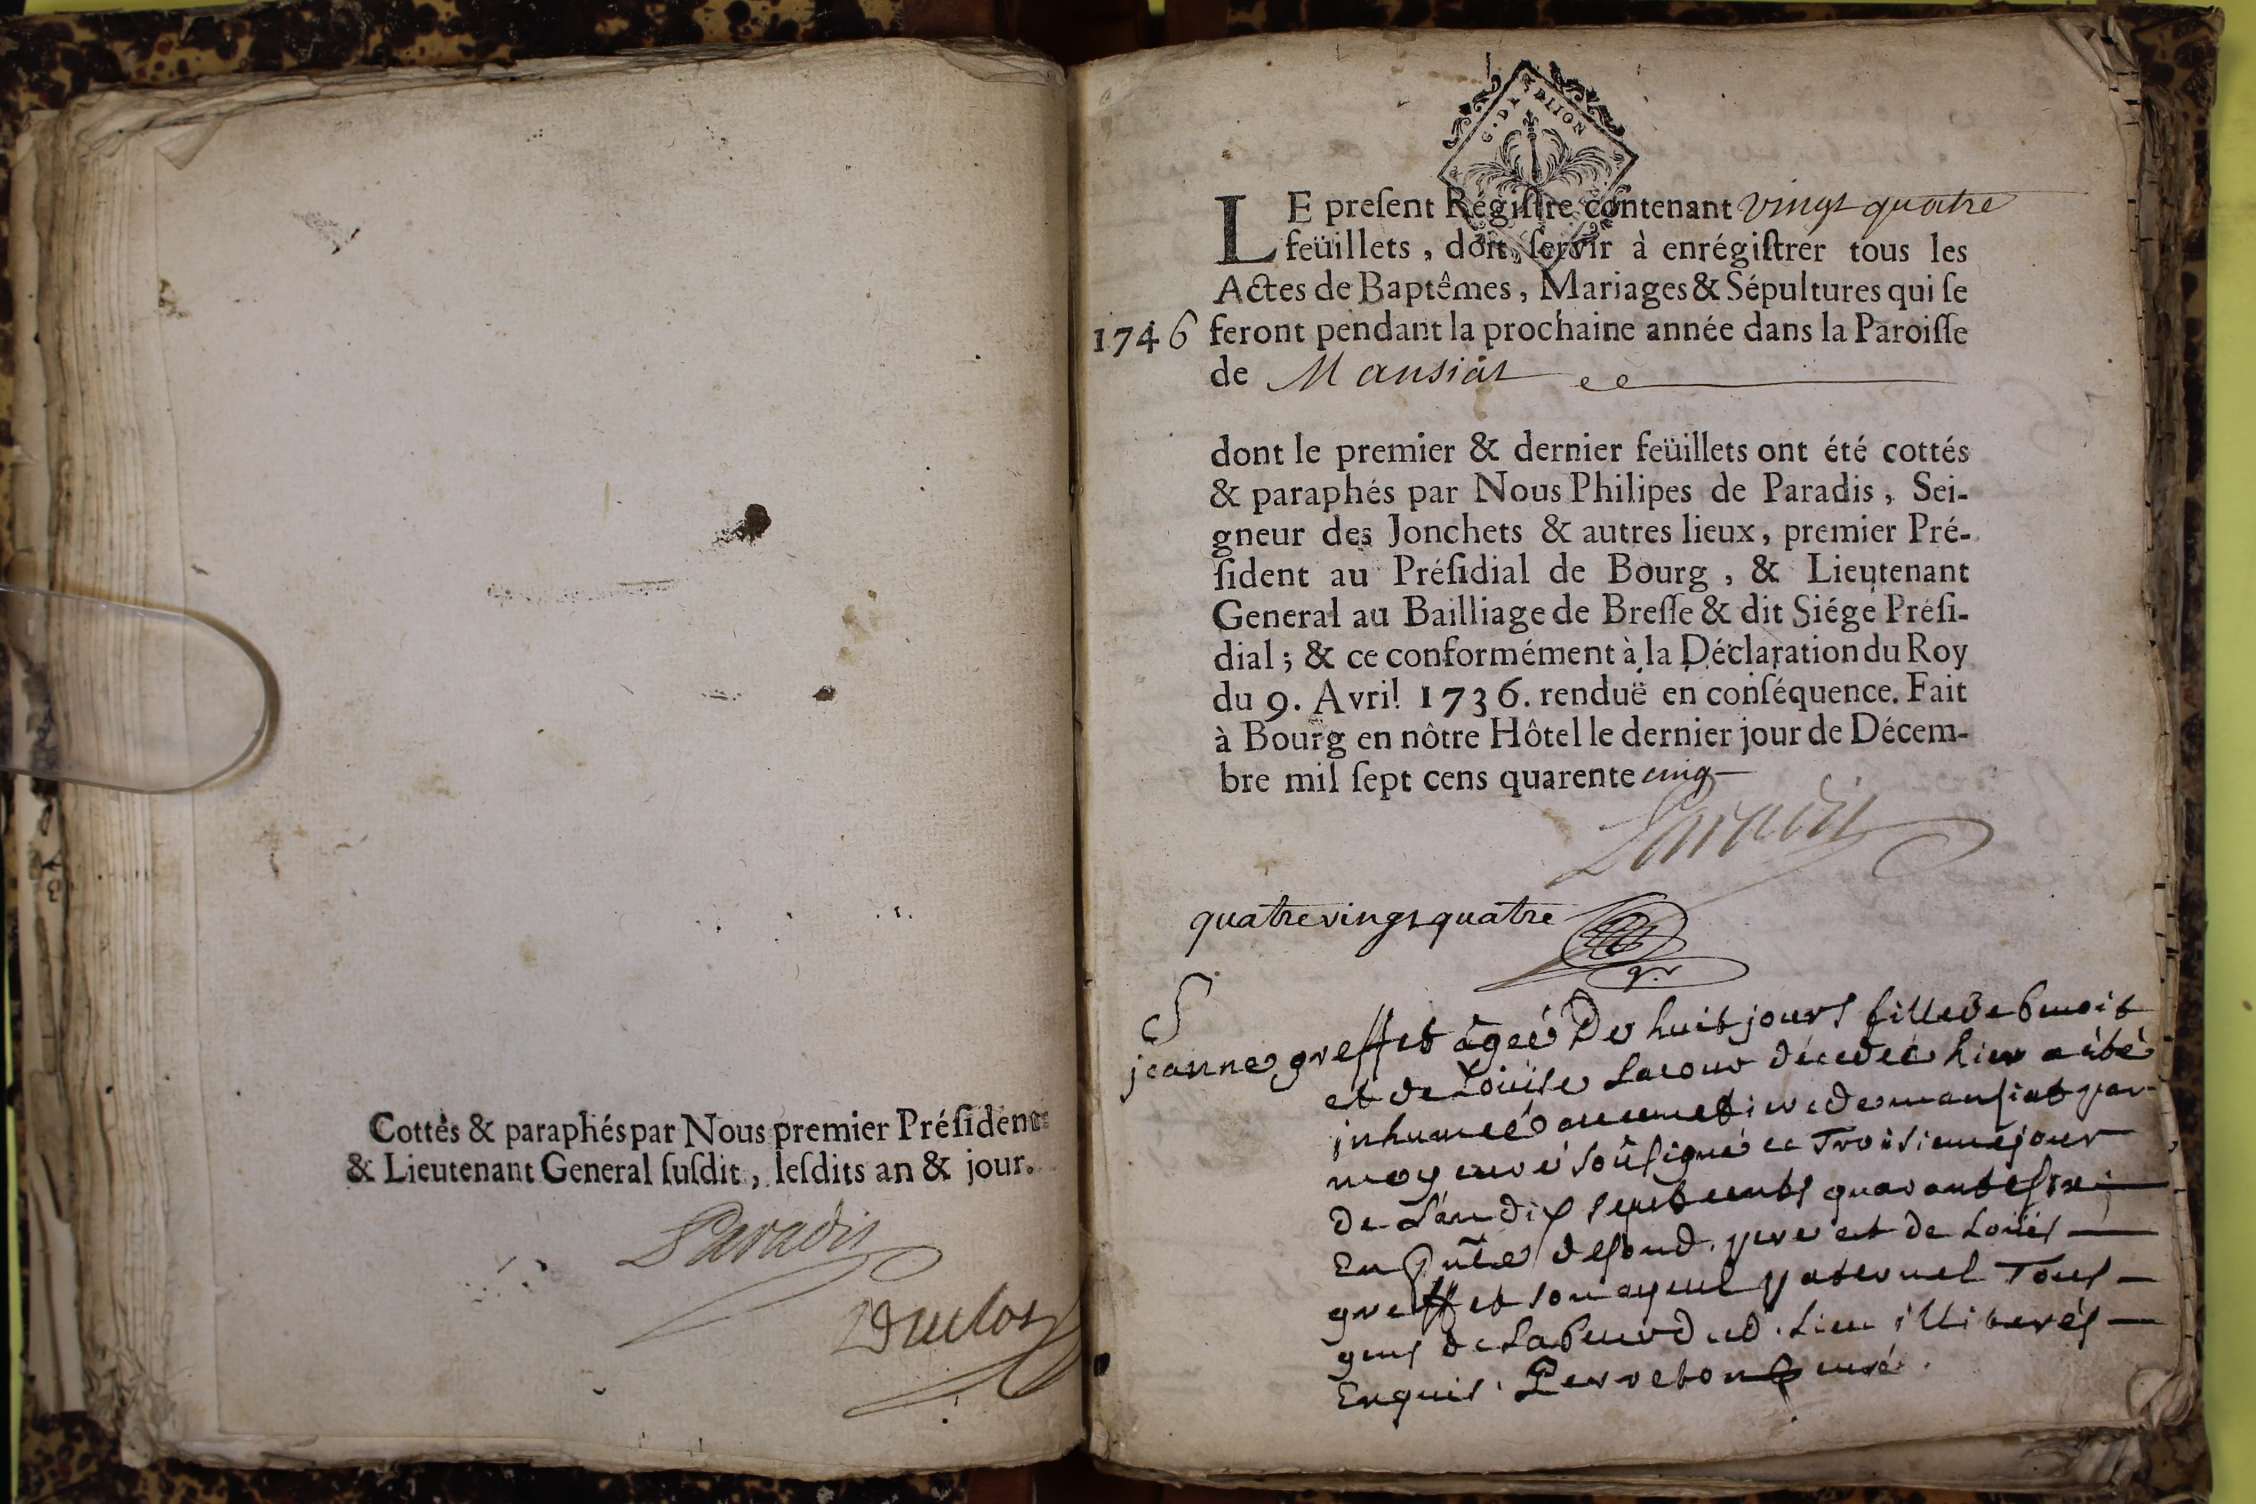 Cottés & paraphés par Nous premier Préſident
& Lieutenant General ſuſdit, leſdits an & jour.
Paradis
Duclos
G. DE DIJON
LE preſent Régiſtre contenant vingt quatre
feüillets, doit ſervir à enrégiſtrer tous les
Actes de Baptêmes, Mariages & Sépultures qui ſe
1746 feront pendant la prochaine année dans la Paroiſſe
de Mansiat
dont le premier & dernier feüillets ont été cottés
& paraphés par Nous Philipes de Paradis, Sei-
gneur des Jonchets & autres lieux, premier Pré-
ſident au Préſidial de Bourg, & Lieutenant
General au Bailliage de Breſſe & dit Siége Préſi-
dial; & ce conformément à la Déclaration du Roy
du 9. Avril 1736. renduë en conſéquence. Fait
à Bourg en nôtre Hôtel le dernier jour de Décem-
bre mil ſept cens quarente cinq
Paradis
quatre vingt quatre
S
jeanne greffet âgeé De huit jours fille de benoit
et de Loüise Lacour décedeé hier a été
inhumeé au cimetiere de mansiat par
moy curé soûsigné ce Troisieme jour
de L'an dix sept cents quarante six
En pñce desond. pere et de Loüis
greffet son ayeul paternel Tous
gens de Labeur dud. Lieu illiterés
Enquis. Perreton curé.